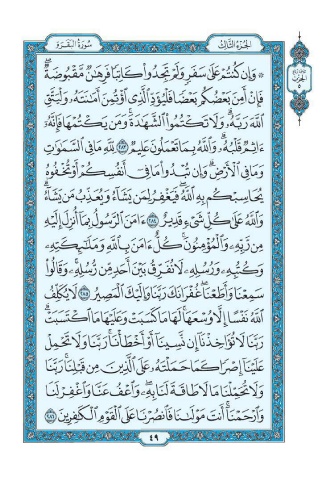 سُورَةُ البَقَرَةِ
الجُزْءُ الثَّالِثُ
۞ وَإِن كُنتُمْ عَلَىٰ سَفَرٍ وَلَمْ تَجِدُوا۟ كَاتِبًا فَرِهَـٰنٌ مَّقْبُوضَةٌ ۖ
فَإِنْ أَمِنَ بَعْضُكُم بَعْضًا فَلْيُؤَدِّ ٱلَّذِى ٱؤْتُمِنَ أَمَـٰنَتَهُۥ وَلْيَتَّقِ
ٱللَّهَ رَبَّهُۥ ۗ وَلَا تَكْتُمُوا۟ ٱلشَّهَـٰدَةَ ۚ وَمَن يَكْتُمْهَا فَإِنَّهُۥٓ
ءَاثِمٌ قَلْبُهُۥ ۗ وَٱللَّهُ بِمَا تَعْمَلُونَ عَلِيمٌ ﴿٢٨٣﴾ لِّلَّهِ مَا فِى ٱلسَّمَـٰوَٰتِ
وَمَا فِى ٱلْأَرْضِ ۗ وَإِن تُبْدُوا۟ مَا فِىٓ أَنفُسِكُمْ أَوْ تُخْفُوهُ
يُحَاسِبْكُم بِهِ ٱللَّهُ ۖ فَيَغْفِرُ لِمَن يَشَآءُ وَيُعَذِّبُ مَن يَشَآءُ ۗ
وَٱللَّهُ عَلَىٰ كُلِّ شَىْءٍ قَدِيرٌ ﴿٢٨٤﴾ ءَامَنَ ٱلرَّسُولُ بِمَآ أُنزِلَ إِلَيْهِ
مِن رَّبِّهِۦ وَٱلْمُؤْمِنُونَ ۚ كُلٌّ ءَامَنَ بِٱللَّهِ وَمَلَـٰٓئِكَتِهِۦ
وَكُتُبِهِۦ وَرُسُلِهِۦ لَا نُفَرِّقُ بَيْنَ أَحَدٍ مِّن رُّسُلِهِۦ ۚ وَقَالُوا۟
سَمِعْنَا وَأَطَعْنَا ۖ غُفْرَانَكَ رَبَّنَا وَإِلَيْكَ ٱلْمَصِيرُ ﴿٢٨٥﴾ لَا يُكَلِّفُ
ٱللَّهُ نَفْسًا إِلَّا وُسْعَهَا ۚ لَهَا مَا كَسَبَتْ وَعَلَيْهَا مَا ٱكْتَسَبَتْ ۗ
رَبَّنَا لَا تُؤَاخِذْنَآ إِن نَّسِينَآ أَوْ أَخْطَأْنَا ۚ رَبَّنَا وَلَا تَحْمِلْ
عَلَيْنَآ إِصْرًا كَمَا حَمَلْتَهُۥ عَلَى ٱلَّذِينَ مِن قَبْلِنَا ۚ رَبَّنَا
وَلَا تُحَمِّلْنَا مَا لَا طَاقَةَ لَنَا بِهِۦ ۖ وَٱعْفُ عَنَّا وَٱغْفِرْ لَنَا
وَٱرْحَمْنَآ ۚ أَنتَ مَوْلَىٰنَا فَٱنصُرْنَا عَلَى ٱلْقَوْمِ ٱلْكَـٰفِرِينَ ﴿٢٨٦﴾
٤٩
الحِزْبُ
٥